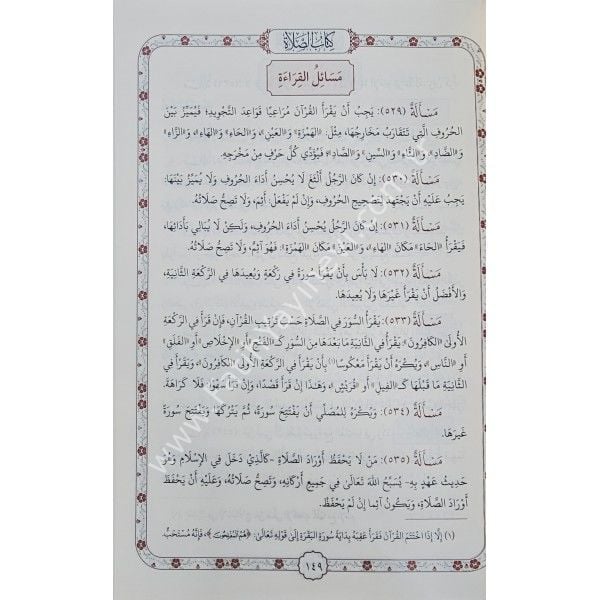 كِتَابُ الصَّلَاةِ
مَسَائِلُ القِرَاءَةِ
مَسْأَلَةٌ (٥٢٩): يَجِبُ أَنْ يَقْرَأَ القُرْآنَ مُرَاعِيًا قَوَاعِدَ التَّجْوِيدِ؛ فَيُمَيِّزُ بَيْنَ
الحُرُوفِ الَّتِي تَتَقَارَبُ مَخَارِجُهَا، مِثْلَ: «الهَمْزَةِ» وَ«العَيْنِ»، وَ«الحَاءِ» وَ«الهَاءِ»، وَ«الزَّاءِ»
وَ«الضَّادِ»، وَ«الثَّاءِ» وَ«السِّينِ» وَ«الصَّادِ»؛ فَيُؤَدِّي كُلَّ حَرْفٍ مِنْ مَخْرَجِهِ.
مَسْأَلَةٌ (٥٣٠): إِنْ كَانَ الرَّجُلُ أَلْثَغَ لَا يُحْسِنُ أَدَاءَ الحُرُوفِ وَلَا يُمَيِّزُ بَيْنَهَا:
يَجِبُ عَلَيْهِ أَنْ يَجْتَهِدَ لِتَصْحِيحِ الحُرُوفِ، وَإِنْ لَمْ يَفْعَلْ: أَثِمَ، وَلَا تَصِحُّ صَلَاتُهُ.
مَسْأَلَةٌ (٥٣١): إِنْ كَانَ الرَّجُلُ يُحْسِنُ أَدَاءَ الحُرُوفِ، وَلَكِنْ لَا يُبَالِي بِأَدَائِهَا،
فَيَقْرَأُ «الحَاءَ» مَكَانَ «الهَاءِ»، وَ«العَيْنَ» مَكَانَ «الهَمْزَةِ»: فَهُوَ آثِمٌ، وَلَا تَصِحُّ صَلَاتُهُ.
مَسْأَلَةٌ (٥٣٢): لَا بَأْسَ بِأَنْ يَقْرَأَ سُورَةً فِي رَكْعَةٍ وَيُعِيدَهَا فِي الرَّكْعَةِ الثَّانِيَةِ،
وَالأَفْضَلُ أَنْ يَقْرَأَ غَيْرَهَا وَلَا يُعِيدَهَا.
مَسْأَلَةٌ (٥٣٣): يَقْرَأُ السُّوَرَ فِي الصَّلَاةِ حَسَبَ تَرْتِيبِ القُرْآنِ، فَإِنْ قَرَأَ فِي الرَّكْعَةِ
الأُولَى «الكَافِرُونَ» يَقْرَأُ فِي الثَّانِيَةِ مَا بَعْدَهَا مِنَ السُّوَرِ كَـ«الفَتْحِ» أَوِ «الإِخْلَاصِ» أَوِ «الفَلَقِ»
أَوِ «النَّاسِ»، وَيُكْرَهُ أَنْ يَقْرَأَ مَعْكُوسًا(١) بِأَنْ يَقْرَأَ فِي الرَّكْعَةِ الأُولَى «الكَافِرُونَ»، وَيَقْرَأَ فِي
الثَّانِيَةِ مَا قَبْلَهَا كَـ«الفِيلِ» أَوْ «قُرَيْشٍ»، وَهَذَا إِنْ قَرَأَ قَصْدًا، وَإِنْ قَرَأَ سَهْوًا: فَلَا كَرَاهَةَ.
مَسْأَلَةٌ (٥٣٤): وَيُكْرَهُ لِلْمُصَلِّي أَنْ يَفْتَتِحَ سُورَةً، ثُمَّ يَتْرُكَهَا وَيَفْتَتِحَ سُورَةً
غَيْرَهَا.
مَسْأَلَةٌ (٥٣٥): مَنْ لَا يَحْفَظُ أَوْرَادَ الصَّلَاةِ -كَالَّذِي دَخَلَ فِي الإِسْلَامِ وَهُوَ
حَدِيثُ عَهْدٍ بِهِ- يُسَبِّحُ اللهَ تَعَالَى فِي جَمِيعِ أَرْكَانِهِ، وَتَصِحُّ صَلَاتُهُ، وَعَلَيْهِ أَنْ يَحْفَظَ
أَوْرَادَ الصَّلَاةِ، وَيَكُونُ آثِمًا إِنْ لَمْ يَحْفَظْ.
(١) إِلَّا إِذَا اخْتَتَمَ القُرْآنَ فَقَرَأَ عَقِيبَهُ بِدَايَةَ سُورَةِ البَقَرَةِ إِلَى قَوْلِهِ تَعَالَى: ﴿هُمُ الْمُفْلِحُونَ﴾، فَإِنَّهُ مُسْتَحَبٌّ.
١٤٩